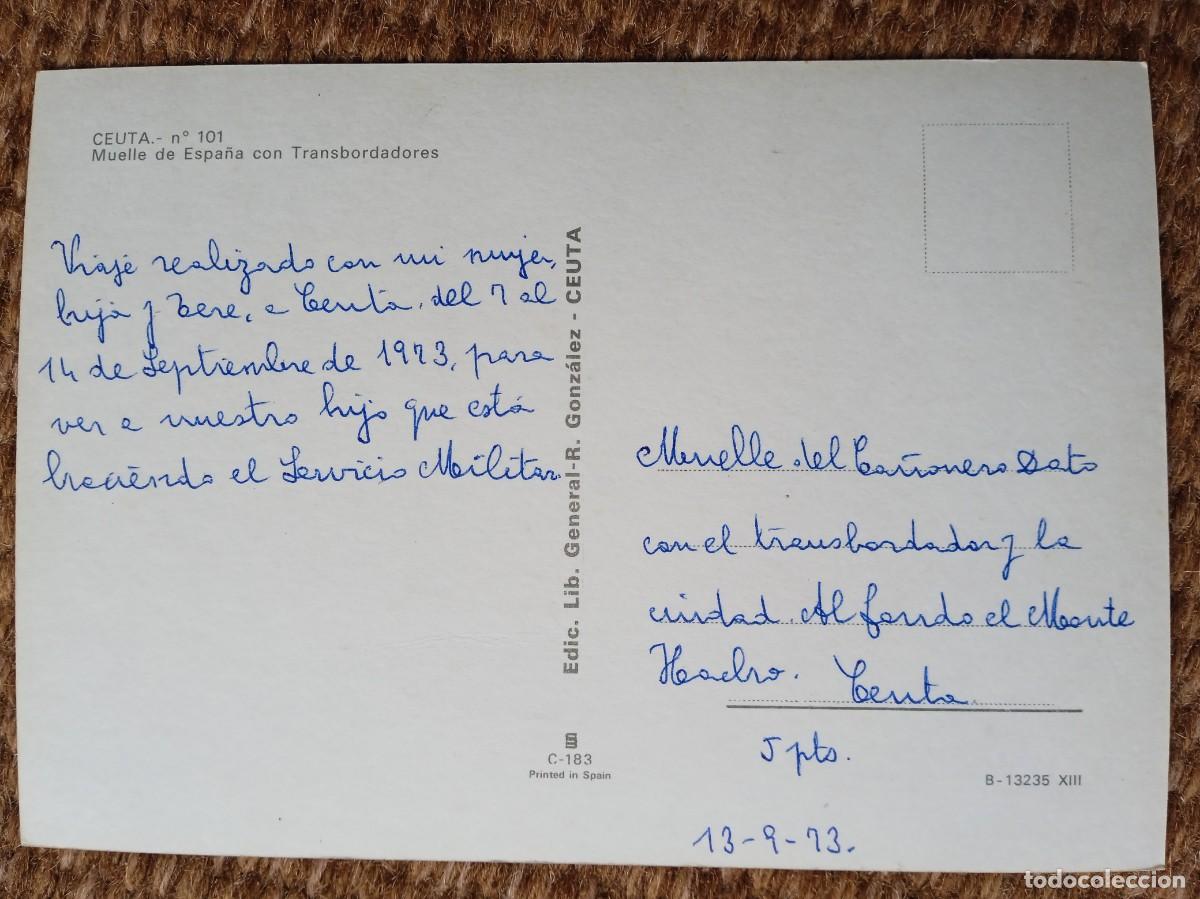 CEUTA.- n° 101
Muelle de España con Transbordadores
Viaje realizado con mi mujer,
hija y Tere, a Ceuta, del 7 al
14 de Septiembre de 1973, para
ver a nuestro hijo que está
haciendo el Servicio Militar.
Edic. Lib. General-R. González - CEUTA
C-183
Printed in Spain
Muelle del Cañonero Dato
con el transbordador y la
ciudad. Al fondo el Monte
Hacho. Ceuta.
5 pts.
B-13235 XIII
13-9-73.
todocoleccion